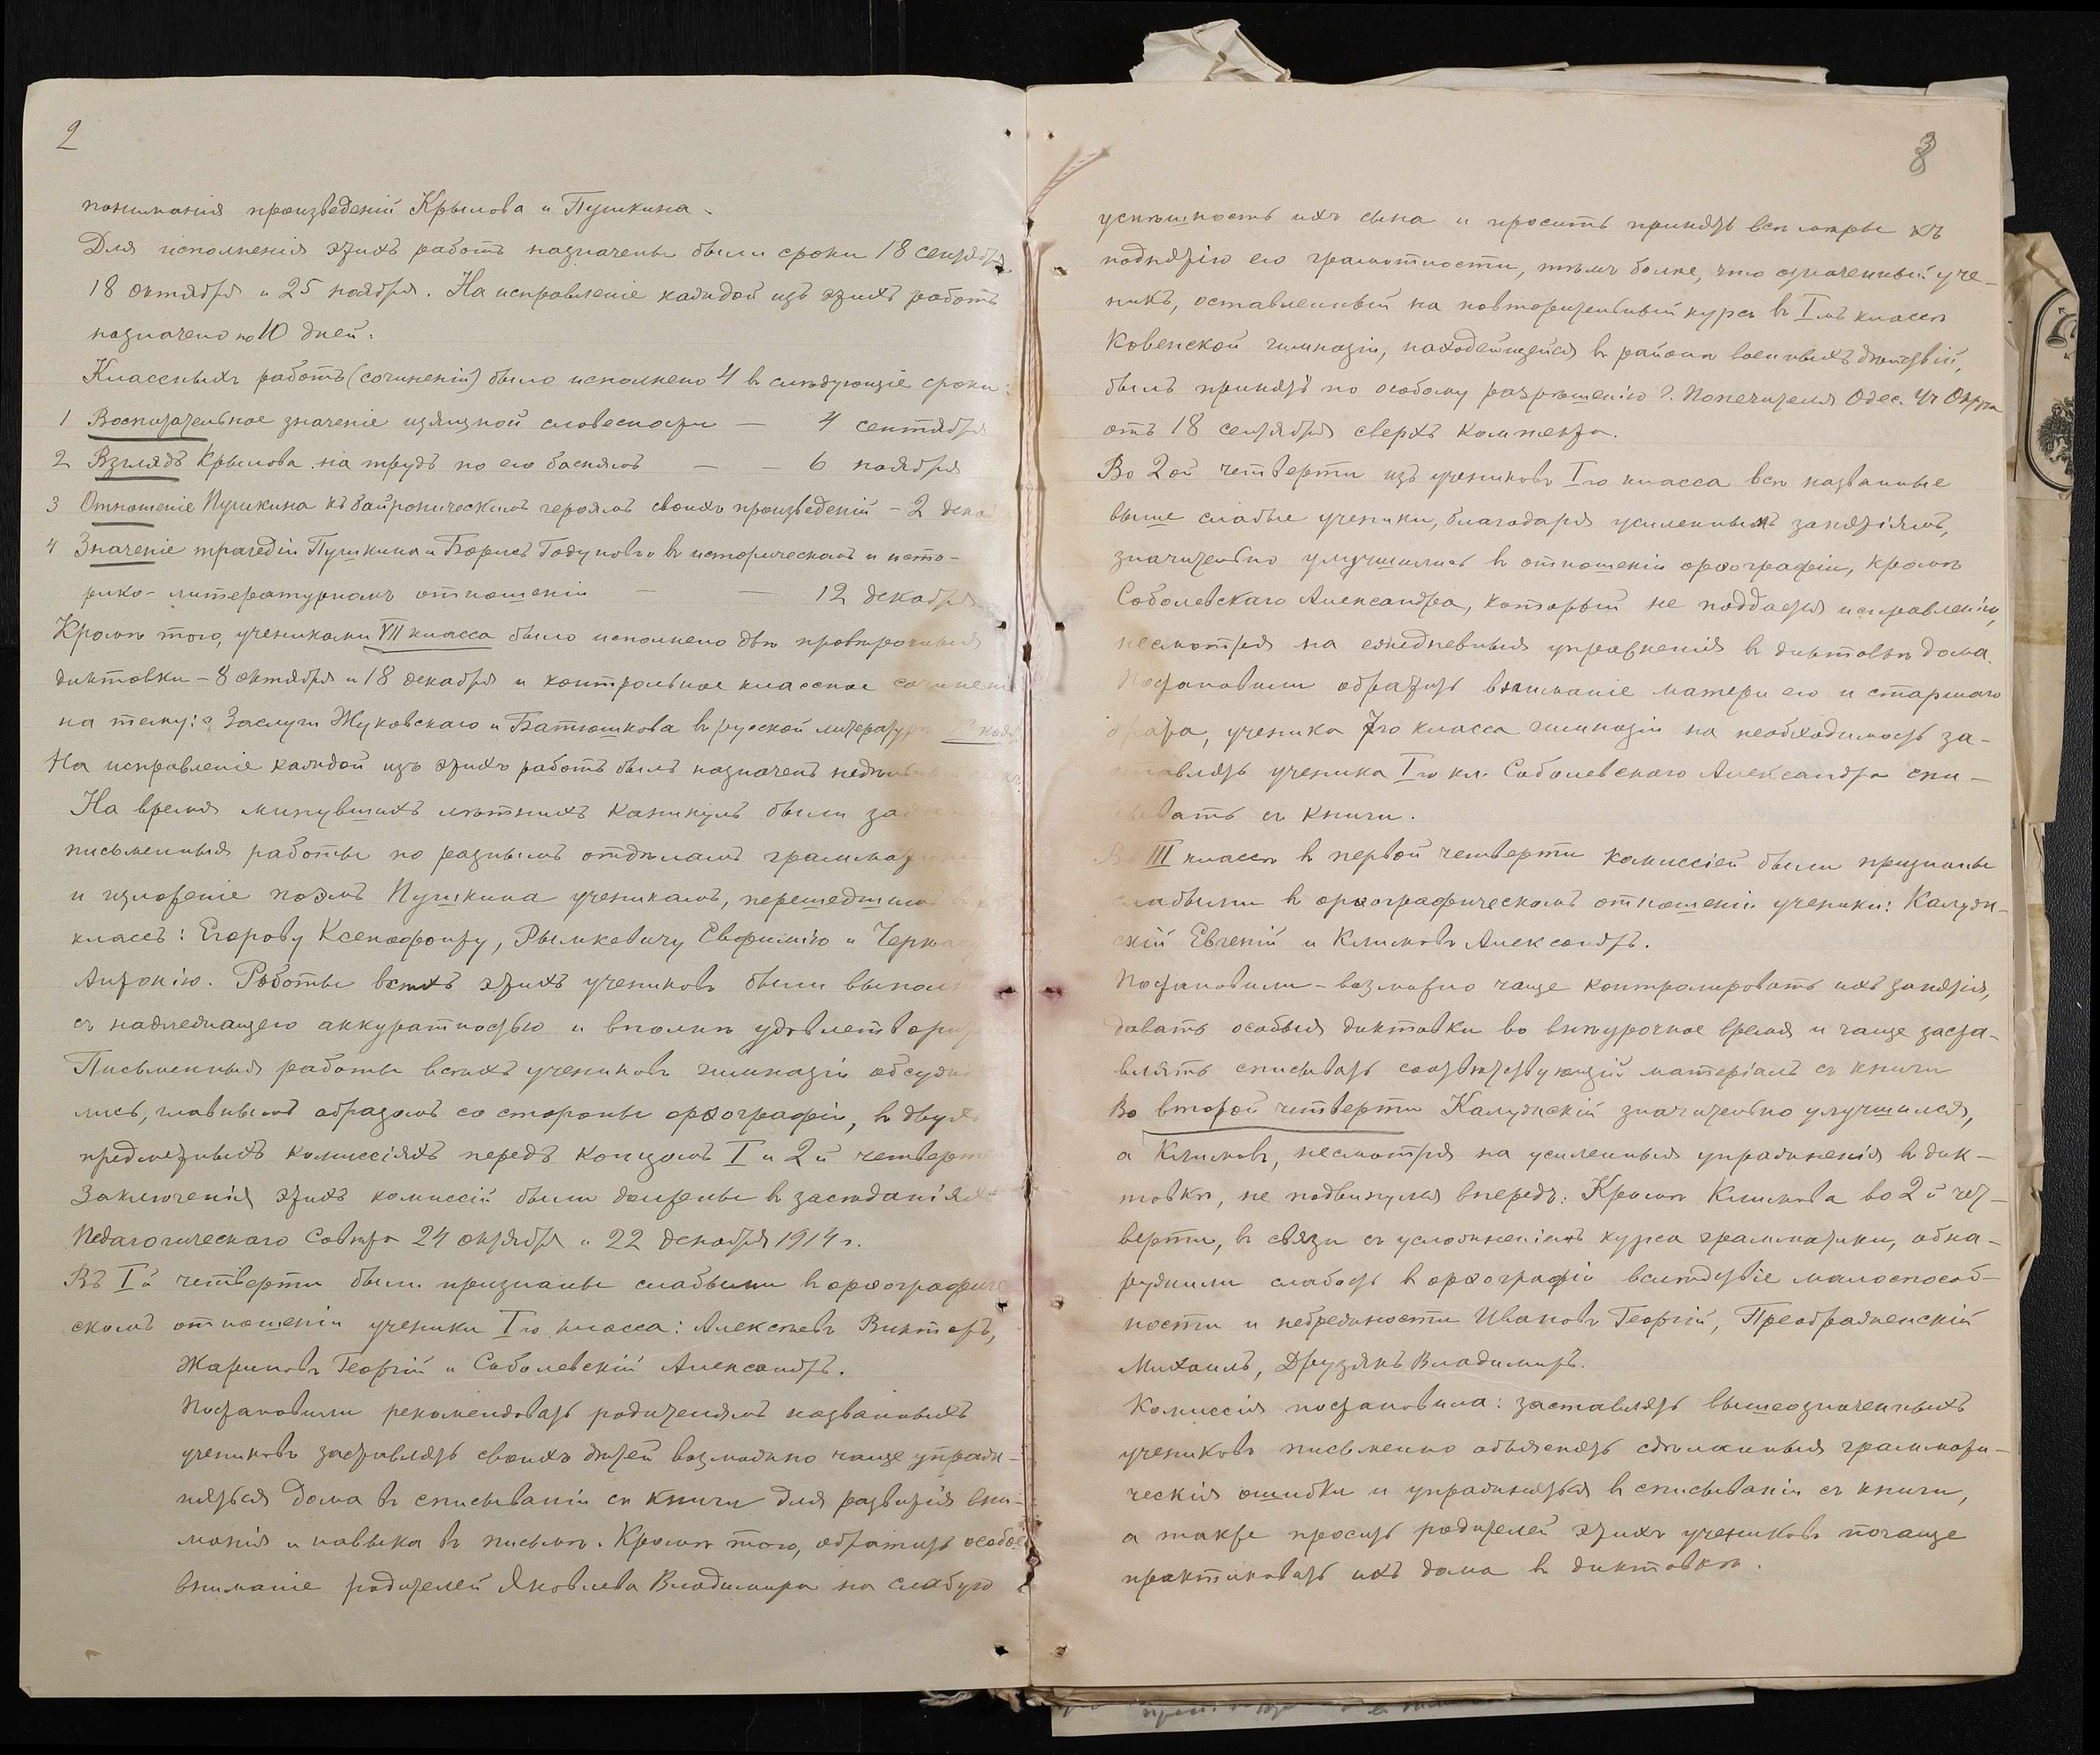 2
пониманія произведеній Крылова и Пушкина.
Для исполненія этихъ работъ назначены были сроки 18 сентября
18 октября и 25 ноября. На исправленіе каждой изъ этихъ работъ
назначено по 10 дней.
Классныхъ работъ (сочиненій) было исполнено 4 въ слѣдующіе сроки:
1 Воспитательное значеніе изящной словесности — 4 сентября
2 Взглядъ Крылова на трудъ по его баснямъ — — 6 ноября
3 Отношеніе Пушкина къ байроническимъ героямъ своихъ произведеній – 2 дека
4 Значеніе трагедіи Пушкина „Борисъ Годуновъ" въ историческомъ и исто-
рико-литературномъ отношеніи — — 12 декабря
Кромѣ того, учениками VII класса было исполнено двѣ провѣрочныя
диктовки – 8 октября и 18 декабря и контрольное классное сочинені
на тему: „Заслуги Жуковскаго и Батюшкова въ русской литературѣ
На исправленіе каждой изъ этихъ работъ былъ назначенъ недѣльн
На время минувшихъ лѣтнихъ каникулъ были за
письменныя работы по разнымъ отдѣламъ граммати
и изложеніе поэмъ Пушкина ученикамъ, перешедшимъ
классъ: Егорову Ксенофонту, Рымкевичу Евфимію и Черн
Антонію. Работы всѣхъ этихъ учениковъ были выполн
съ надлежащею аккуратностью и вполнѣ удовлетвори
Письменныя работы всѣхъ учениковъ гимназіи обсужда
лись, главнымъ образомъ со стороны орѳографіи, въ двух
предметныхъ комиссіяхъ передъ концомъ I и 2й четверт
Заключенія этихъ комиссій были доложены въ засѣданіях
Педагогическаго Совѣта 24 октября и 22 декабря 1914 г.
Въ Iй четверти были признаны слабыми въ орѳографиче
скомъ отношеніи ученики Iго класса: Алексѣевъ Викторъ,
Жариновъ Георгій и Соболевскій Александръ.
Постановили рекомендовать родителямъ названныхъ
учениковъ заставлять своихъ дѣтей возможно чаще упраж-
няться дома въ списываніи съ книги для развитія вни-
манія и навыка въ письмѣ. Кромѣ того, обратить особое
вниманіе родителей Яковлева Владимира на слабую
3
успѣшность ихъ сына и просить принять всѣ мѣры къ
поднятію его грамотности, тѣмъ болѣе, что означенный уче-
никъ, оставленный на повторительный курсъ въ Iмъ классѣ
Ковенской гимназіи, находящейся въ районѣ военныхъ дѣйствій,
былъ принятъ по особому разрѣшенію Г. Попечителя Одес. Уч Округа
отъ 18 сентября сверхъ комплекта.
Во 2ой четверти изъ учениковъ Iго класса всѣ названные
выше слабые ученики, благодаря усиленнымъ занятіямъ,
значительно улучшились въ отношеніи орѳографіи, кромѣ
Соболевскаго Александра, который не поддается исправленію,
несмотря на ежедневныя упражненія въ диктовкѣ дома.
Постановили обратить вниманіе матери его и старшаго
брата, ученика 7го класса гимназіи на необходимость за-
ставлять ученика Iго кл. Соболевскаго Александра спи-
сывать съ книги.
Въ III классѣ въ первой четверти комиссіей были признаны
слабыми въ орѳографическомъ отношеніи ученики: Калуж-
скій Евгеній и Климовъ Александръ.
Постановили – возможно чаще контролировать ихъ занятія,
давать особыя диктовки во внѣурочное время и чаще заста-
влять списывать соотвѣтствующій матеріалъ съ книги
Во второй четверти Калужскій значительно улучшился,
а Климовъ, несмотря на усиленныя упражненія въ дик-
товкѣ, не подвинулся впередъ. Кромѣ Климова во 2й чет-
верти, въ связи съ усложненіемъ курса грамматики, обна-
ружили слабость въ орѳографіи вслѣдствіе малоспособ-
ности и небрежности Ивановъ Георгій, Преображенскій
Михаилъ, Друзякъ Владимиръ.
Комиссія постановила: заставлять вышеозначенныхъ
учениковъ письменно объяснять сдѣланныя граммати-
ческія ошибки и упражняться въ списываніи съ книги,
а также просить родителей этихъ учениковъ почаще
практиковать ихъ дома въ диктовкѣ.